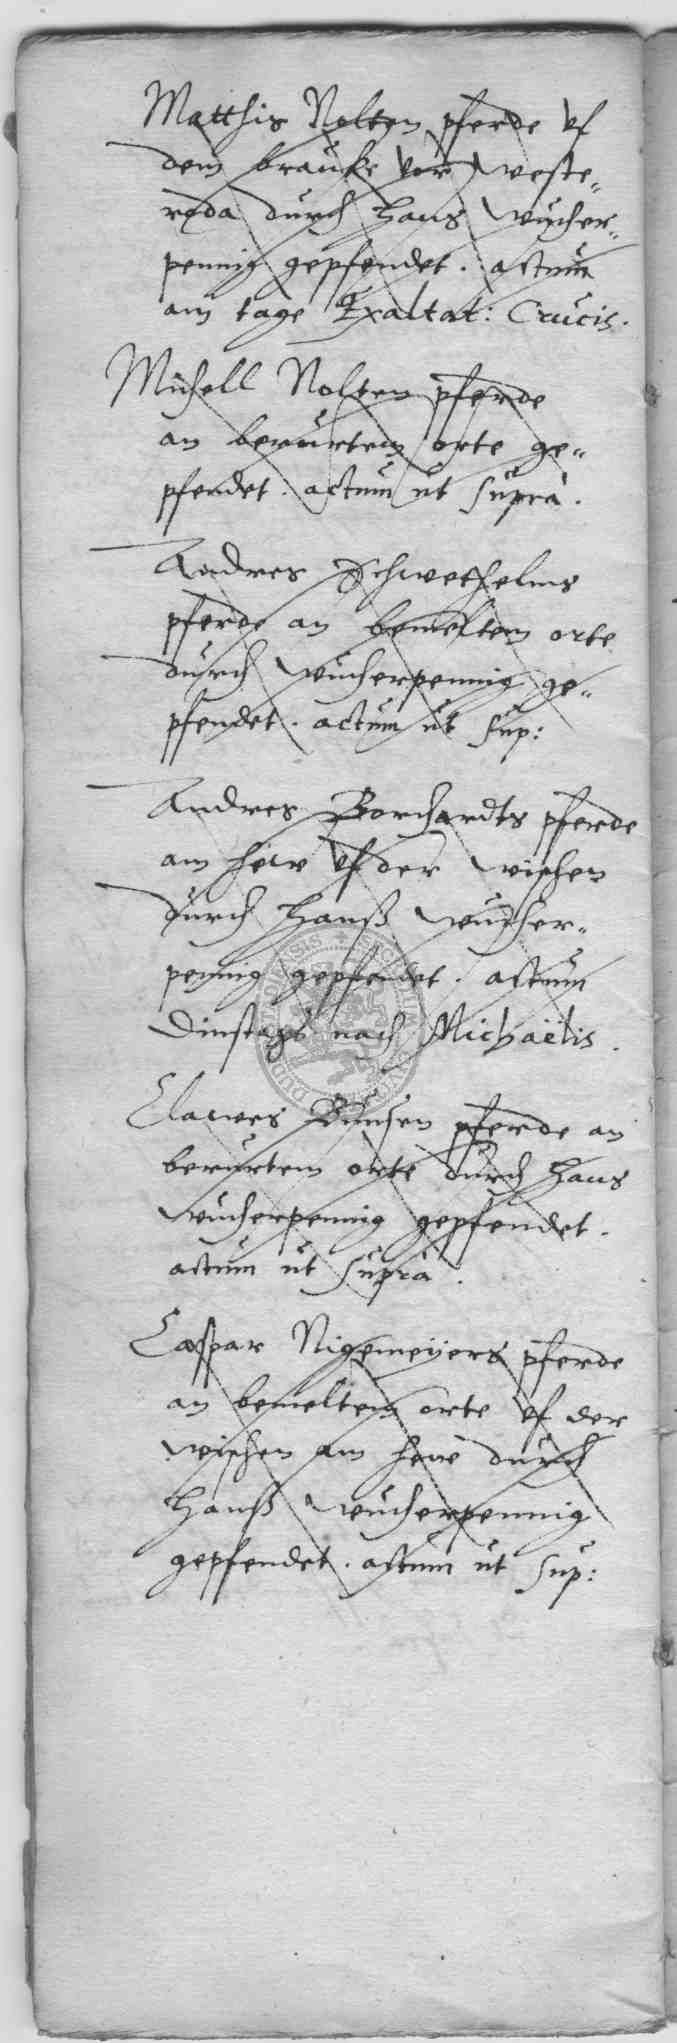 Matthis Nolten pferde vf
dem brauke vor Weste„
roda durch Hans Wucher„
pennig gepfendet. actum
am tage Exaltat: Crucis.
Michell Nolten pferde
an berurtem orte ge„
pfendet. actum ut supra.
Andres Schwethelms
pferde an bemeltem orte
durch Wucherpennig ge„
pfendet. actum ut sup:
Andres Borchardts pferde
am hew vf der wischen
durch Hanß Wucher„
pennig gepfendet. actum
Dinstags nach Michaëlis.
Clawes Bunsen pferde an
berurtem orte durch Hans
Wucherpennig gepfendet.
actum ut supra.
Caspar Nigemeÿers pferde
an bemeltem orte vf der
wischen am hew durch
Hanß Wucherpennig
gepfendet. actum ut sup: